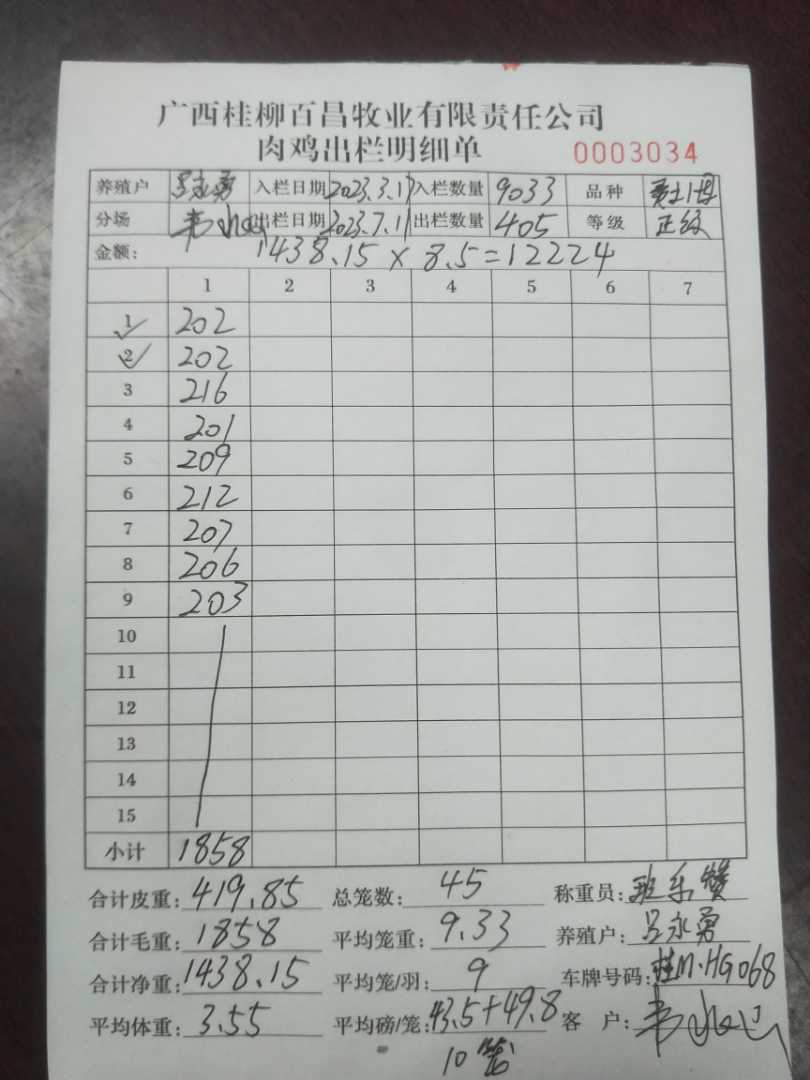 广西桂柳百昌牧业有限责任公司
肉鸡出栏明细单 0003034
养殖户 吕永勇 入栏日期 2023.3.17 入栏数量 9033 品种
分场 出栏日期 2023.7.11 出栏数量 405 等级 正级
金额: 1438.15×8.5=12224
1 2 3 4 5 6 7
1 202
2 202
3 216
4 201
5 209
6 212
7 207
8 206
9 203
10
11
12
13
14
15
小计 1858
合计皮重: 419.85 总笼数: 45 称重员: 班乐赞
合计毛重: 1858 平均笼重: 9.33 养殖户: 吕永勇
合计净重: 1438.15 平均笼/羽: 9 车牌号码: 桂M·HG068
平均体重: 3.55 平均磅/笼: 43.5+49.8 客 户:
10笼